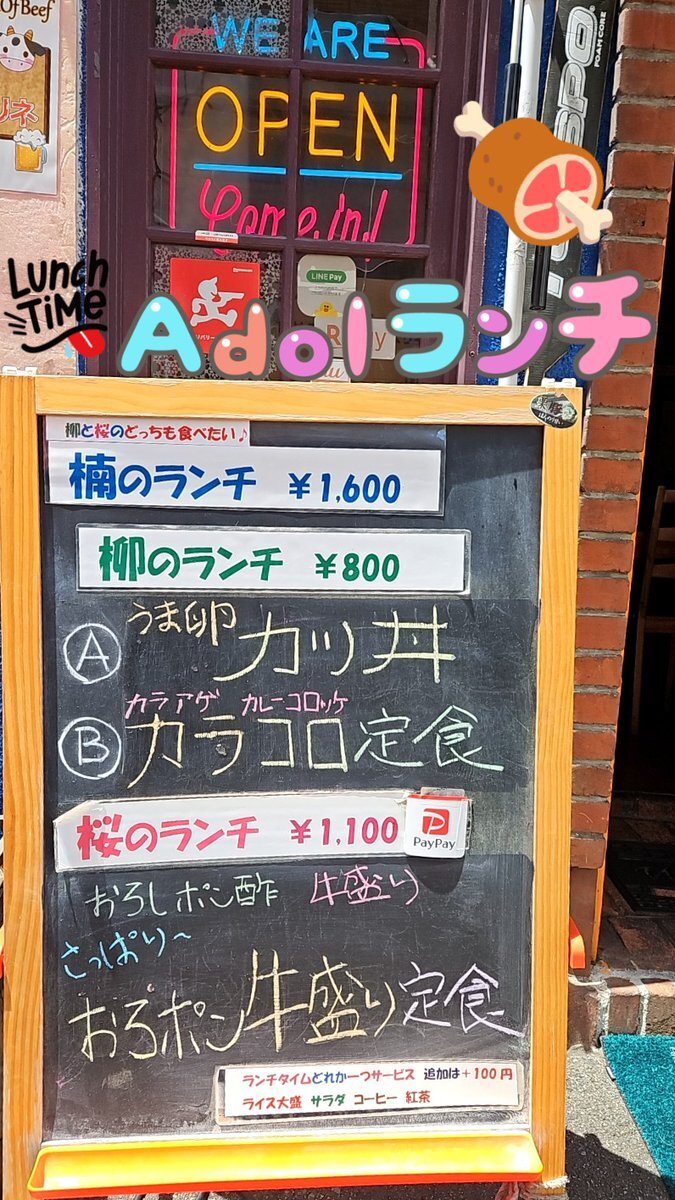 Of Beef
リネ
WE ARE
OPEN
Come in!
LINE Pay
Lunch
TiME
Adolランチ
柳と桜のどっちも食べたい♪
楠のランチ ￥1,600
柳のランチ ￥800
Ⓐ うま卵 カツ丼
カラアゲ カレーコロッケ
Ⓑ カラコロ定食
桜のランチ ￥1,100
PayPay
おろしポン酢 牛盛り
さっぱり～
おろポン牛盛り定食
ランチタイムどれか一つサービス 追加は+100円
ライス大盛 サラダ コーヒー 紅茶